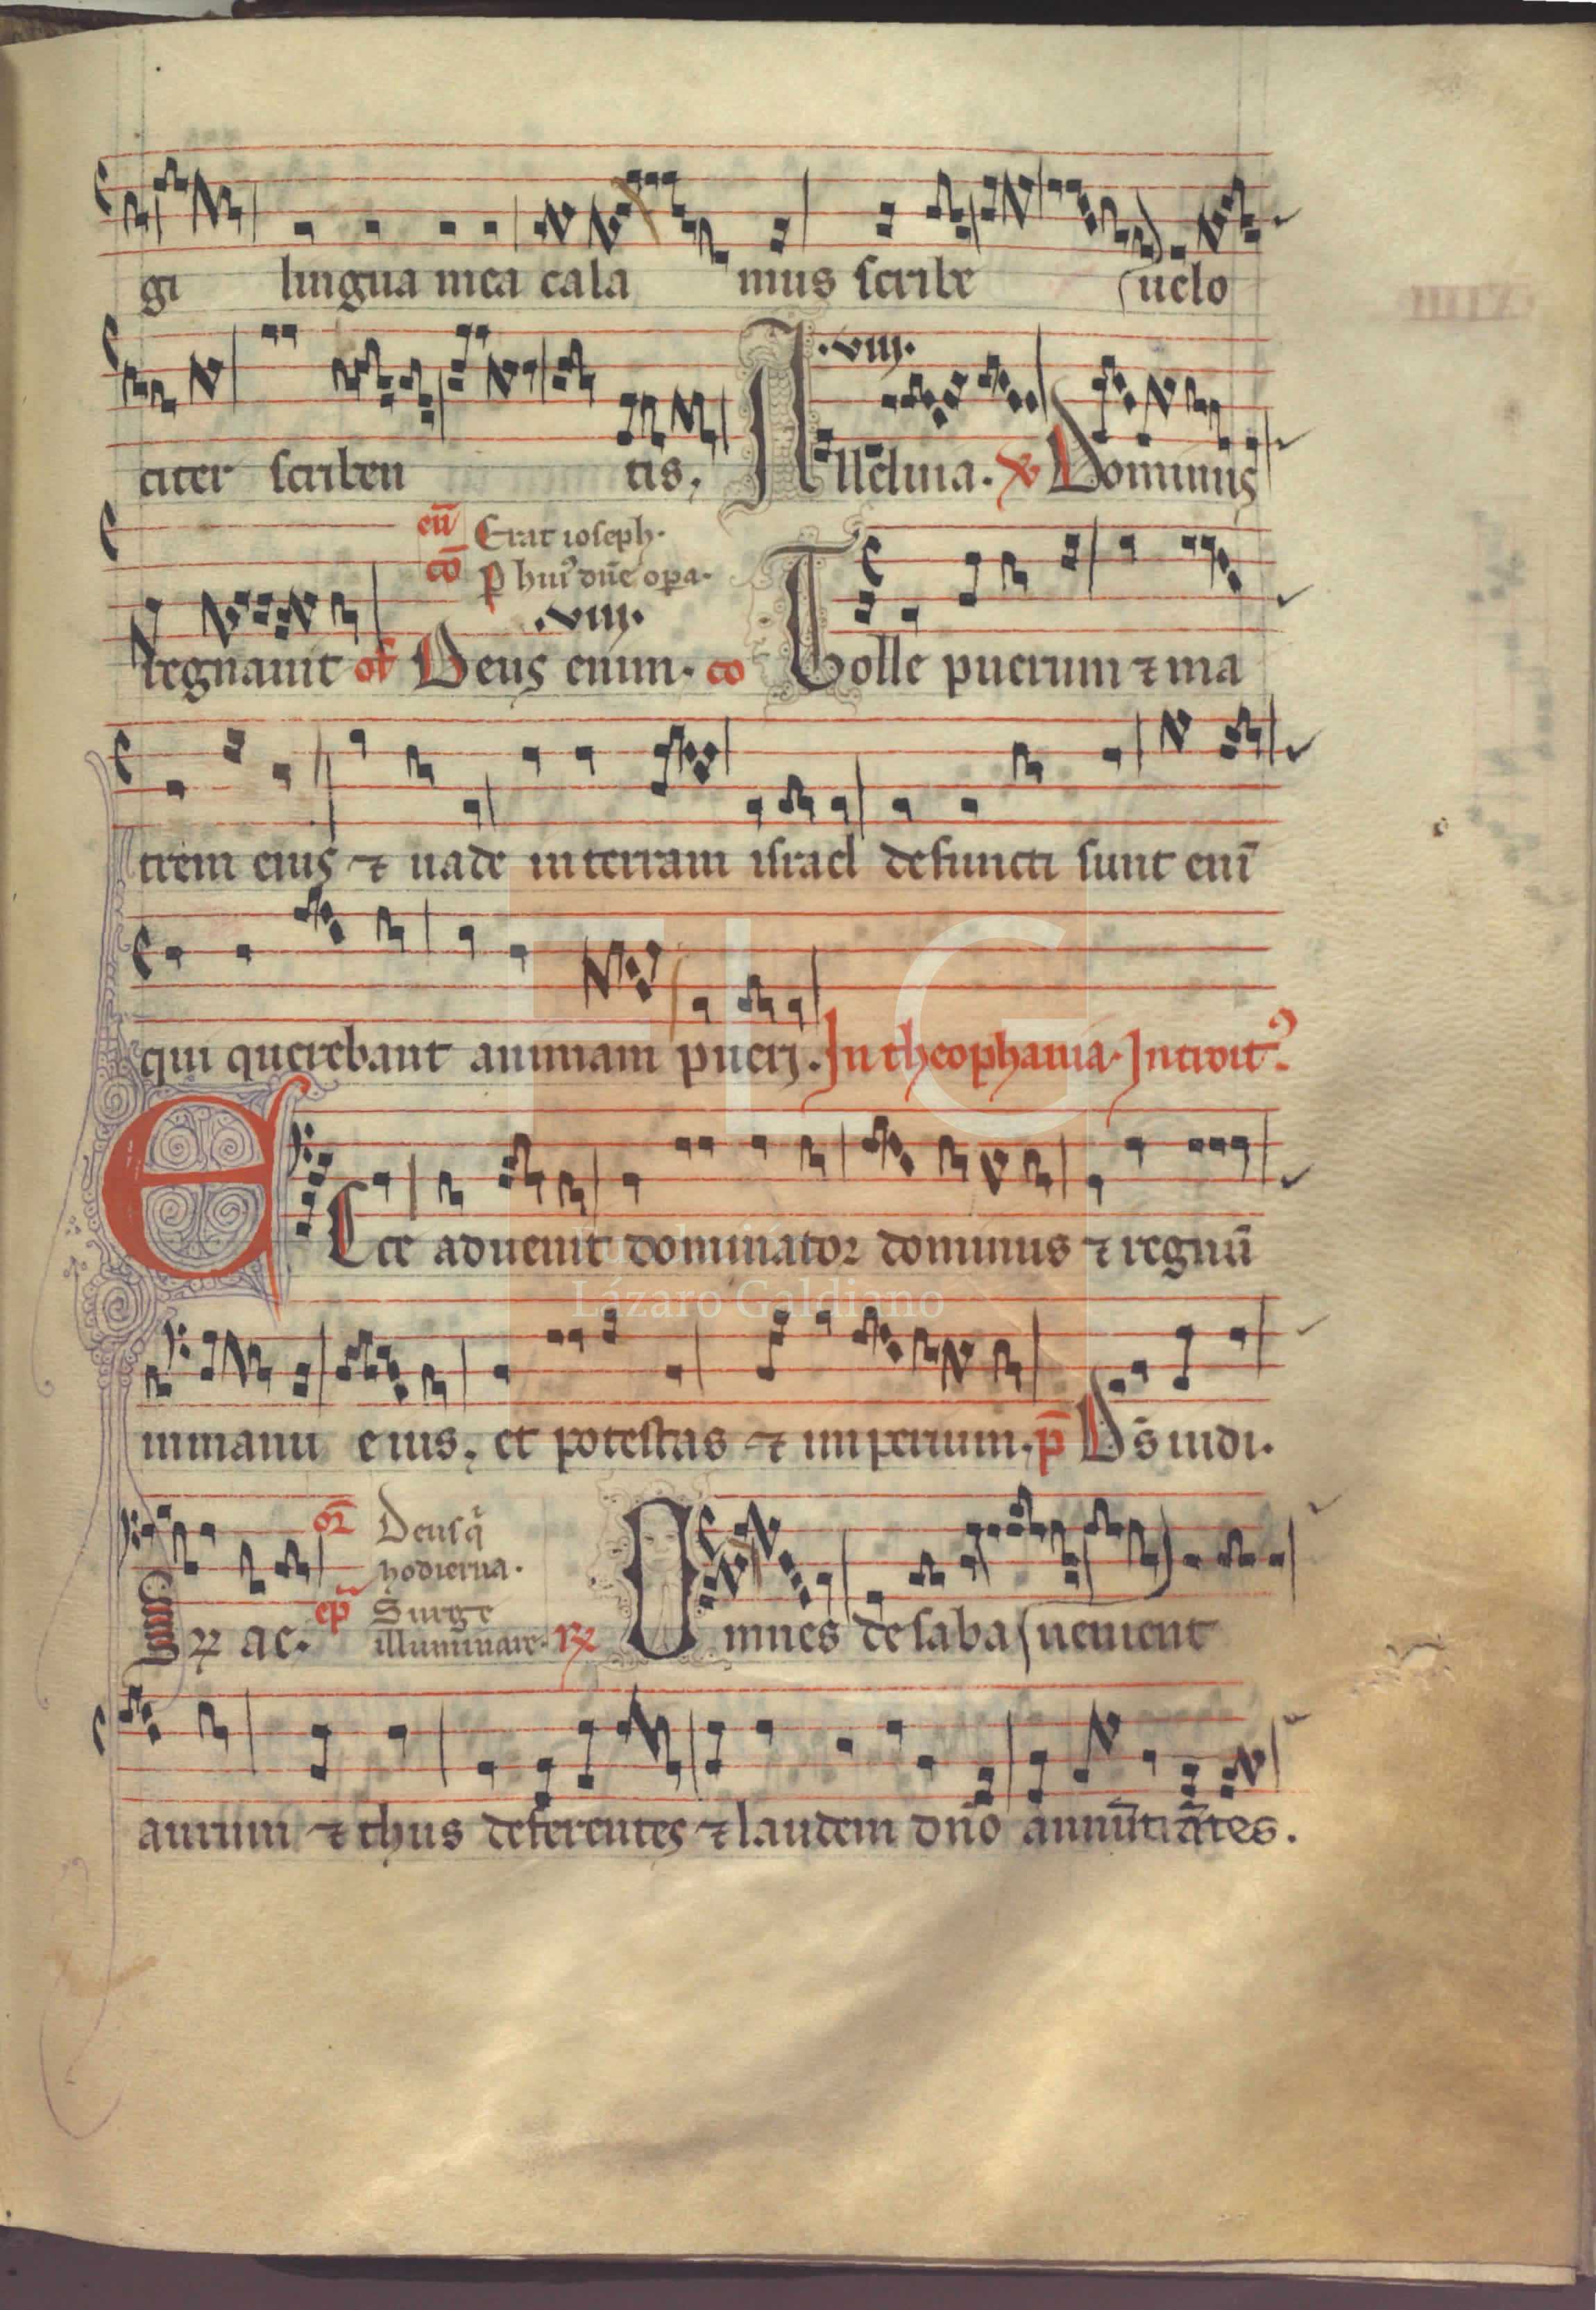 gi lingua mea cala mus scribe uelo
.viii.
citer scriben tis; Alleluia. ℣ Dominus
eu̅ Erat ioseph.
co̅ P huiꝰ dn̅e opa.
.viii.
regnauit of Deus enim. co Tolle puerum ⁊ ma
trem eius ⁊ uade in terram israel defuncti sunt eni̅
qui querebant animam pueri. In theophania. Introitꝰ.
ECce aduenit dominator dominus ⁊ regnu̅
inmanu eius; et potestas ⁊ imperium. p̅ Ds̅ iudi.
or̅ Deus q̇
hodierna.
ep̅ Surge
illuminare. ℟ Omnes de saba uenient
aurum ⁊ thus deferentes ⁊ laudem dn̅o annu̅tia̅tes.
FLG
Lázaro Galdiano